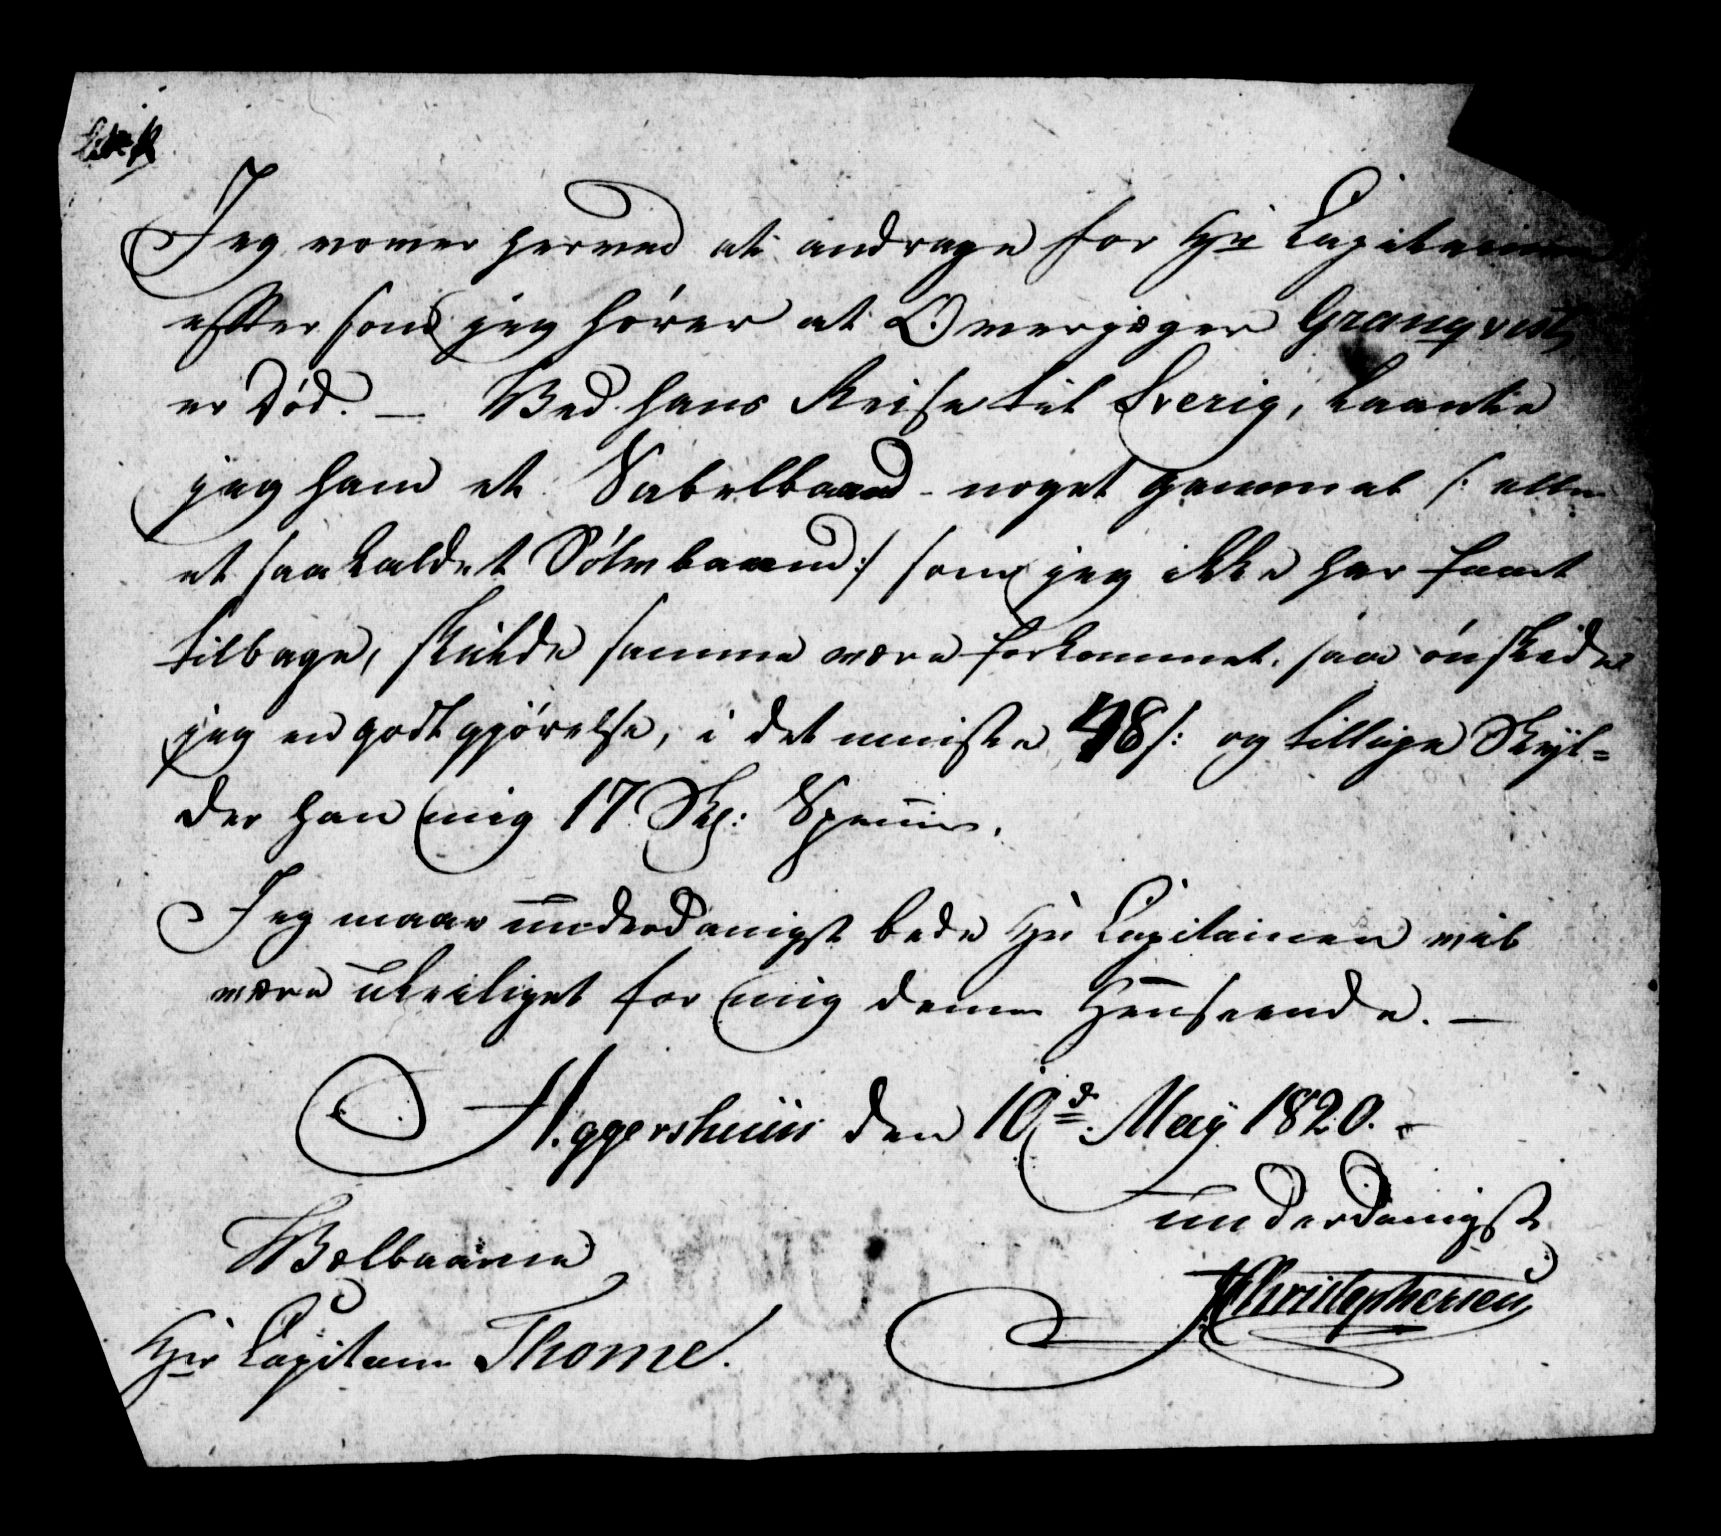 Jeg vover herved at andrage for Hr Capitainen
efftersom jeg hører at Overjæger Granqvist
er Død. — Ved hans Reise til Sverig, laante
jeg ham et Sabelbaand - noget gammelt /: eller
et saakaldet Sölvbaand :/ som jeg ikke har faaet
tilbage, skulde samme være forkommet, saa ønskede
jeg en godtgjörelse, i det minste 48 s: og tillige Skyl=
der han mig 17 Sk: Species.
Jeg maae underdanigst bede Hr Capitainen vil
være uleiliget for mig denne Henseende. —
Aggershuus den 10d May 1820. -
underdanigst
Christophersen
Velbaarne
Hr Capitain Thome.